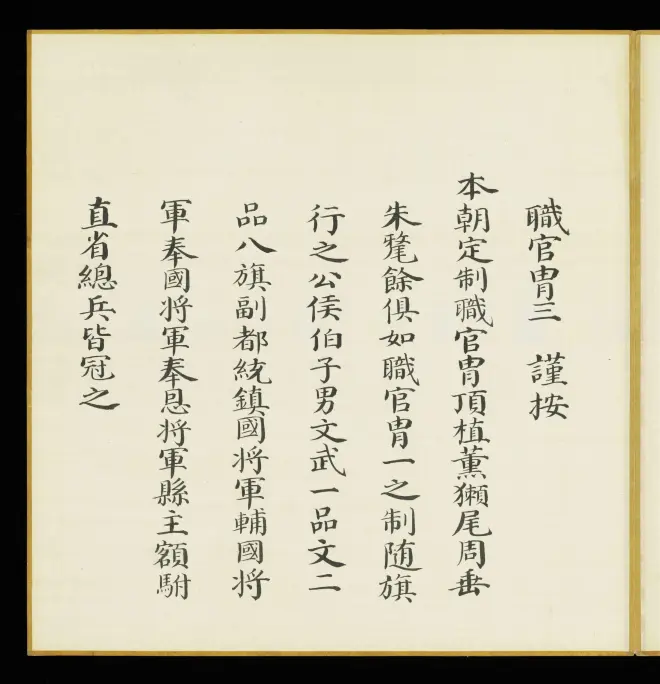 職官冑三　謹按
本朝定制職官冑頂植薰獺尾周垂
朱氂餘俱如職官冑一之制隨旗
行之公侯伯子男文武一品文二
品八旗副都統鎮國將軍輔國將
軍奉國將軍奉恩將軍縣主額駙
直省總兵皆冠之